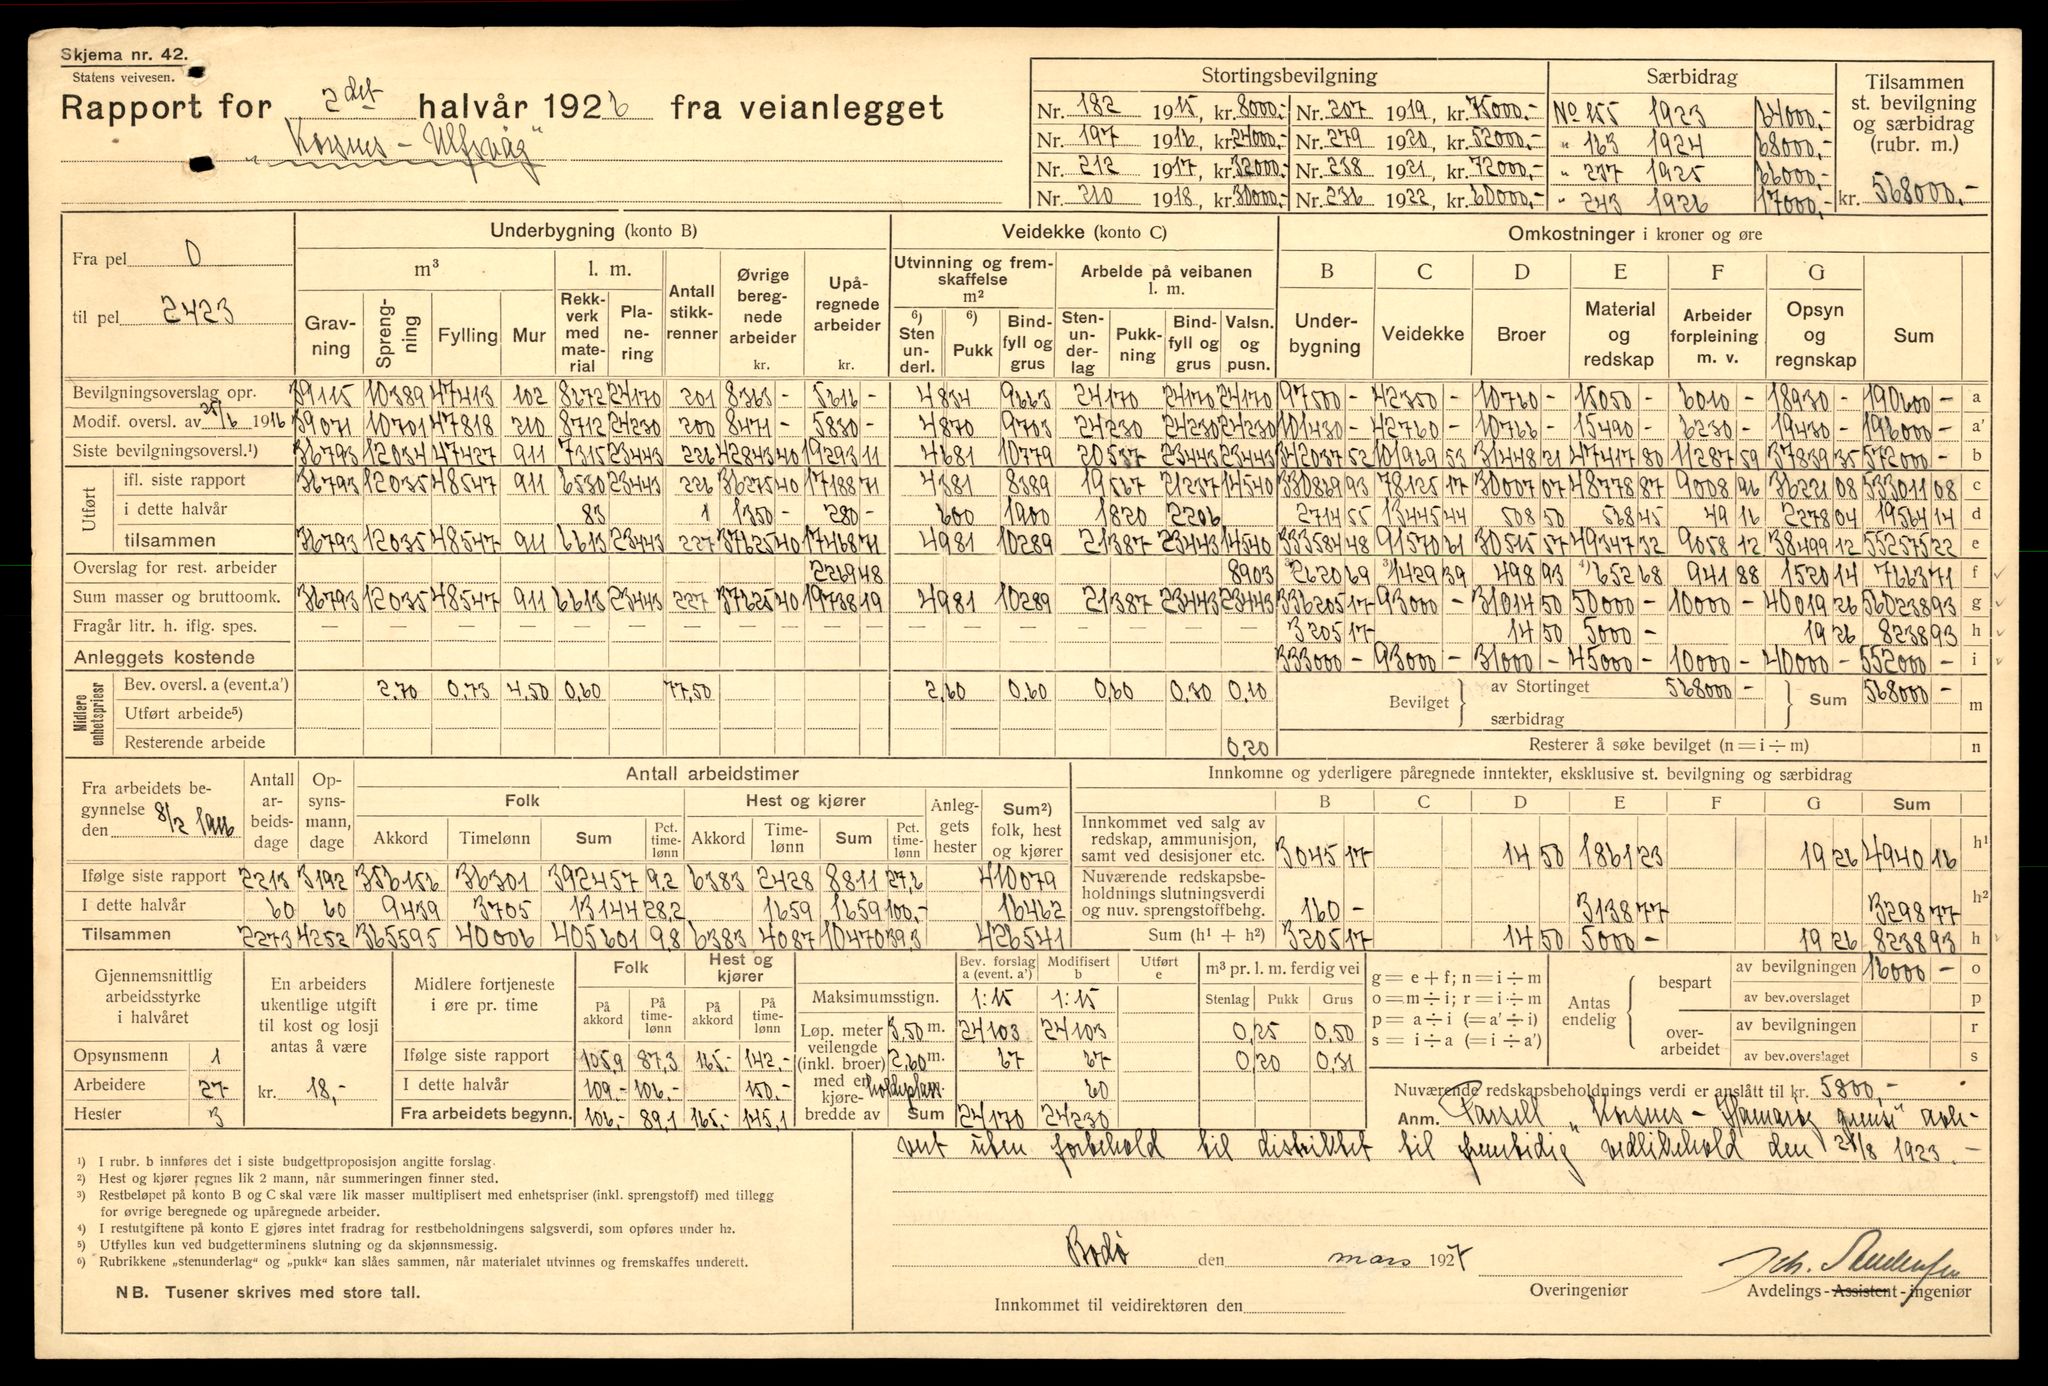 Skjema nr. 42.
Statens veivesen.
Rapport for 2det halvår 1926 fra veianlegget
„Korsnes – Ulfsvåg"
Stortingsbevilgning
Nr. 182 1915, kr. 8000.- Nr. 207 1919, kr. 75000.-
Nr. 197 1916, kr. 24000.- Nr. 279 1920, kr. 52000.-
Nr. 212 1917, kr. 32000.- Nr. 238 1921, kr. 72000.-
Nr. 210 1918, kr. 30000.- Nr. 236 1922, kr. 60000.-
Særbidrag
No 155 1923 64000,-
" 163 1924 68000,-
" 237 1925 66000,-
" 243 1926 17000,-
Tilsammen
st. bevilgning
og særbidrag
(rubr. m.)
kr. 568000.-
Fra pel 0
til pel 2423
Underbygning (konto B) Veidekke (konto C) Omkostninger i kroner og øre
m³ l. m. Antall stikkrenner Øvrige beregnede arbeider kr. Upåregnede arbeider kr.
Utvinning og fremskaffelse m² Arbeide på veibanen l. m.
Gravning Sprengning Fylling Mur Rekkverk med material Planering
⁶) Sten underl. ⁶) Pukk Bindfyll og grus Stenunderlag Pukkning Bindfyll og grus Valsn. og pusn.
B Underbygning C Veidekke D Broer E Material og redskap F Arbeider forpleining m. v. G Opsyn og regnskap Sum
Bevilgningsoverslag opr. 39115 10389 47413 102 8272 24170 201 8363 - 5616 - 4834 9663 24170 24170 24170 97500 - 42350 - 10760 - 15050 - 6010 - 18930 - 190600 - a
Modif. oversl. av 25/6 1916 39071 10701 47818 210 8712 24230 200 8471 - 5830 - 4870 9703 24230 24230 24230 101430 - 42760 - 10766 - 15490 - 6230 - 19430 - 196000 - a'
Siste bevilgningsoversl.¹) 36793 12034 47427 911 7315 23443 226 42843 40 19293 11 4681 10779 20537 23443 23443 342037 52 101969 53 31448 21 47417 80 11287 59 37839 35 572000 - b
Utført
ifl. siste rapport 36793 12035 48547 911 6530 23443 226 36275 40 17188 71 4381 8389 19567 21237 14540 330869 93 78125 17 30007 07 48778 87 9008 96 36221 08 533011 08 c
i dette halvår 83 1 1350 - 280 - 600 1900 1820 2206 2714 55 13445 44 508 50 568 45 49 16 2278 04 19564 14 d
tilsammen 36793 12035 48547 911 6613 23443 227 37625 40 17468 71 4981 10289 21387 23443 14540 333584 48 91570 61 30515 57 49347 32 9058 12 38499 12 552575 22 e
Overslag for rest. arbeider 2269 48 8903 ³) 2620 69 ³) 1429 39 498 93 ⁴) 652 68 941 88 1520 14 7663 71 f
Sum masser og bruttoomk. 36793 12035 48547 911 6613 23443 227 37625 40 19738 19 4981 10289 21387 23443 23443 336205 17 93000 - 31014 50 50000 - 10000 - 40019 26 560238 93 g
Fragår litr. h. iflg. spes. — — — — — — — — — — — — — — — — 3205 17 14 50 5000 - 19 26 8238 93 h
Anleggets kostende 333000 - 93000 - 31000 - 45000 - 10000 - 40000 - 552000 - i
Midlere enhetspriesr
Bev. oversl. a (event. a') 2.70 0,73 4.50 0,60 77,50 2,60 0,60 0,60 0,30 0,10
Utført arbeide⁵)
Resterende arbeide 0,20
Bevilget av Stortinget 568000 - særbidrag Sum 568000 - m
Resterer å søke bevilget (n = i ÷ m) n
Fra arbeidets begynnelse den 8/2 1916
Antall arbeidsdage Opsynsmann, dage Antall arbeidstimer
Folk Hest og kjører Anleggets hester Sum²) folk, hest og kjører
Akkord Timelønn Sum Pct. timelønn Akkord Timelønn Sum Pct. timelønn
Ifølge siste rapport 2213 3192 356156 36301 392457 9.2 6383 2428 8811 27,6 410079
I dette halvår 60 60 9439 3705 13144 28,2 1659 1659 100,- 16462
Tilsammen 2273 4252 365595 40006 405601 9,8 6383 4087 10470 39,3 426541
Innkomne og yderligere påregnede inntekter, eksklusive st. bevilgning og særbidrag
B C D E F G Sum
Innkommet ved salg av redskap, ammunisjon, samt ved desisjoner etc. 3045 17 14 50 1861 23 19 26 4940 16 h¹
Nuværende redskapsbeholdnings slutningsverdi og nuv. sprengstoffbehg. 160 - 3138 77 3298 77 h²
Sum (h¹ + h²) 3205 17 14 50 5000 - 19 26 8238 93 h
Gjennemsnittlig arbeidsstyrke i halvåret
Opsynsmenn 1
Arbeidere 27
Hester 3
En arbeiders ukentlige utgift til kost og losji antas å være
kr. 18,-
Midlere fortjeneste i øre pr. time
Folk Hest og kjører
På akkord På timelønn På akkord På timelønn
Ifølge siste rapport 105,9 87,3 165,- 142,-
I dette halvår 109.- 106.- 150.-
Fra arbeidets begynn. 106,- 89,1 165,- 145,1
Bev. forslag a (event. a') Modifisert b Utført e
Maksimumsstign. 1:15 1:15
Løp. meter veilengde (inkl. broer) med en kjørebredde av
3,50 m. 24103 24103
2,60 m. 67 67
60
Sum 24170 24230
m³ pr. l. m. ferdig vei
Stenlag Pukk Grus
0,25 0,50
0,20 0,31
g = e + f; n = i ÷ m
o = m ÷ i; r = i ÷ m
p = a ÷ i (= a' ÷ i)
s = i ÷ a (= i ÷ a')
Antas endelig
bespart av bevilgningen 16000 - o
av bev.overslaget p
overarbeidet av bevilgningen r
av bev.overslaget s
Nuværende redskapsbeholdnings verdi er anslått til kr. 5800,-
Anm. Parsell „Korsnes – Hamarøy grense" over-
vert uten forbehold til distriktet til fremtidig vedlikehold den 21/8 1923. –
¹) I rubr. b innføres det i siste budgettproposisjon angitte forslag.
²) Hest og kjører regnes lik 2 mann, når summeringen finner sted.
³) Restbeløpet på konto B og C skal være lik masser multiplisert med enhetspriser (inkl. sprengstoff) med tillegg
for øvrige beregnede og upåregnede arbeider.
⁴) I restutgiftene på konto E gjøres intet fradrag for restbeholdningens salgsverdi, som opføres under h2.
⁵) Utfylles kun ved budgetterminens slutning og da skjønnsmessig.
⁶) Rubrikkene „stenunderlag" og „pukk" kan slåes sammen, når materialet utvinnes og fremskaffes underett.
NB. Tusener skrives med store tall.
Bodø den mars 1927
Innkommet til veidirektøren den
Overingeniør
Avdelings-Assistent-ingeniør